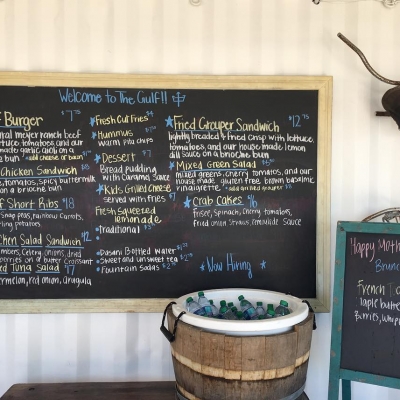 Welcome to The Gulf!!
Burger $7.75
meyer ranch beef
tomatoes, and our
made garlic aioli on a
bun *add cheese or bacon
Chicken Sandwich $8
tomatoes, spicy buttermilk
on a brioche bun
Short Ribs $18
snap peas, rainbow carrots,
potatoes
Chicken Salad Sandwich $12
celery, onions, dried
on a butter croissant
Tuna Salad $17
watermelon, red onion, arugula
*Fresh Cut Fries $4
*Hummus
warm pita chips
*Dessert $7
Bread pudding
with caramel sauce
*Kids Grilled Cheese
served with fries $7
Fresh Squeezed
lemonade
*traditional $3
Dasani Bottled water
Sweet and unsweet tea
Fountain Sodas
*Fried Grouper Sandwich $12.75
lightly breaded & fried crisp with lettuce,
tomatoes, and our house made lemon
dill sauce on a brioche bun
*Mixed Green Salad
mixed greens, cherry tomatoes, and our
house made gluten free brown balsamic
vinaigrette *add grilled grouper $8
*Crab Cakes $16
Frisee, Spinach, Cherry tomatoes,
Fried onion straws, remoulade sauce
*Now Hiring *
Happy Moth
Brunc
French To